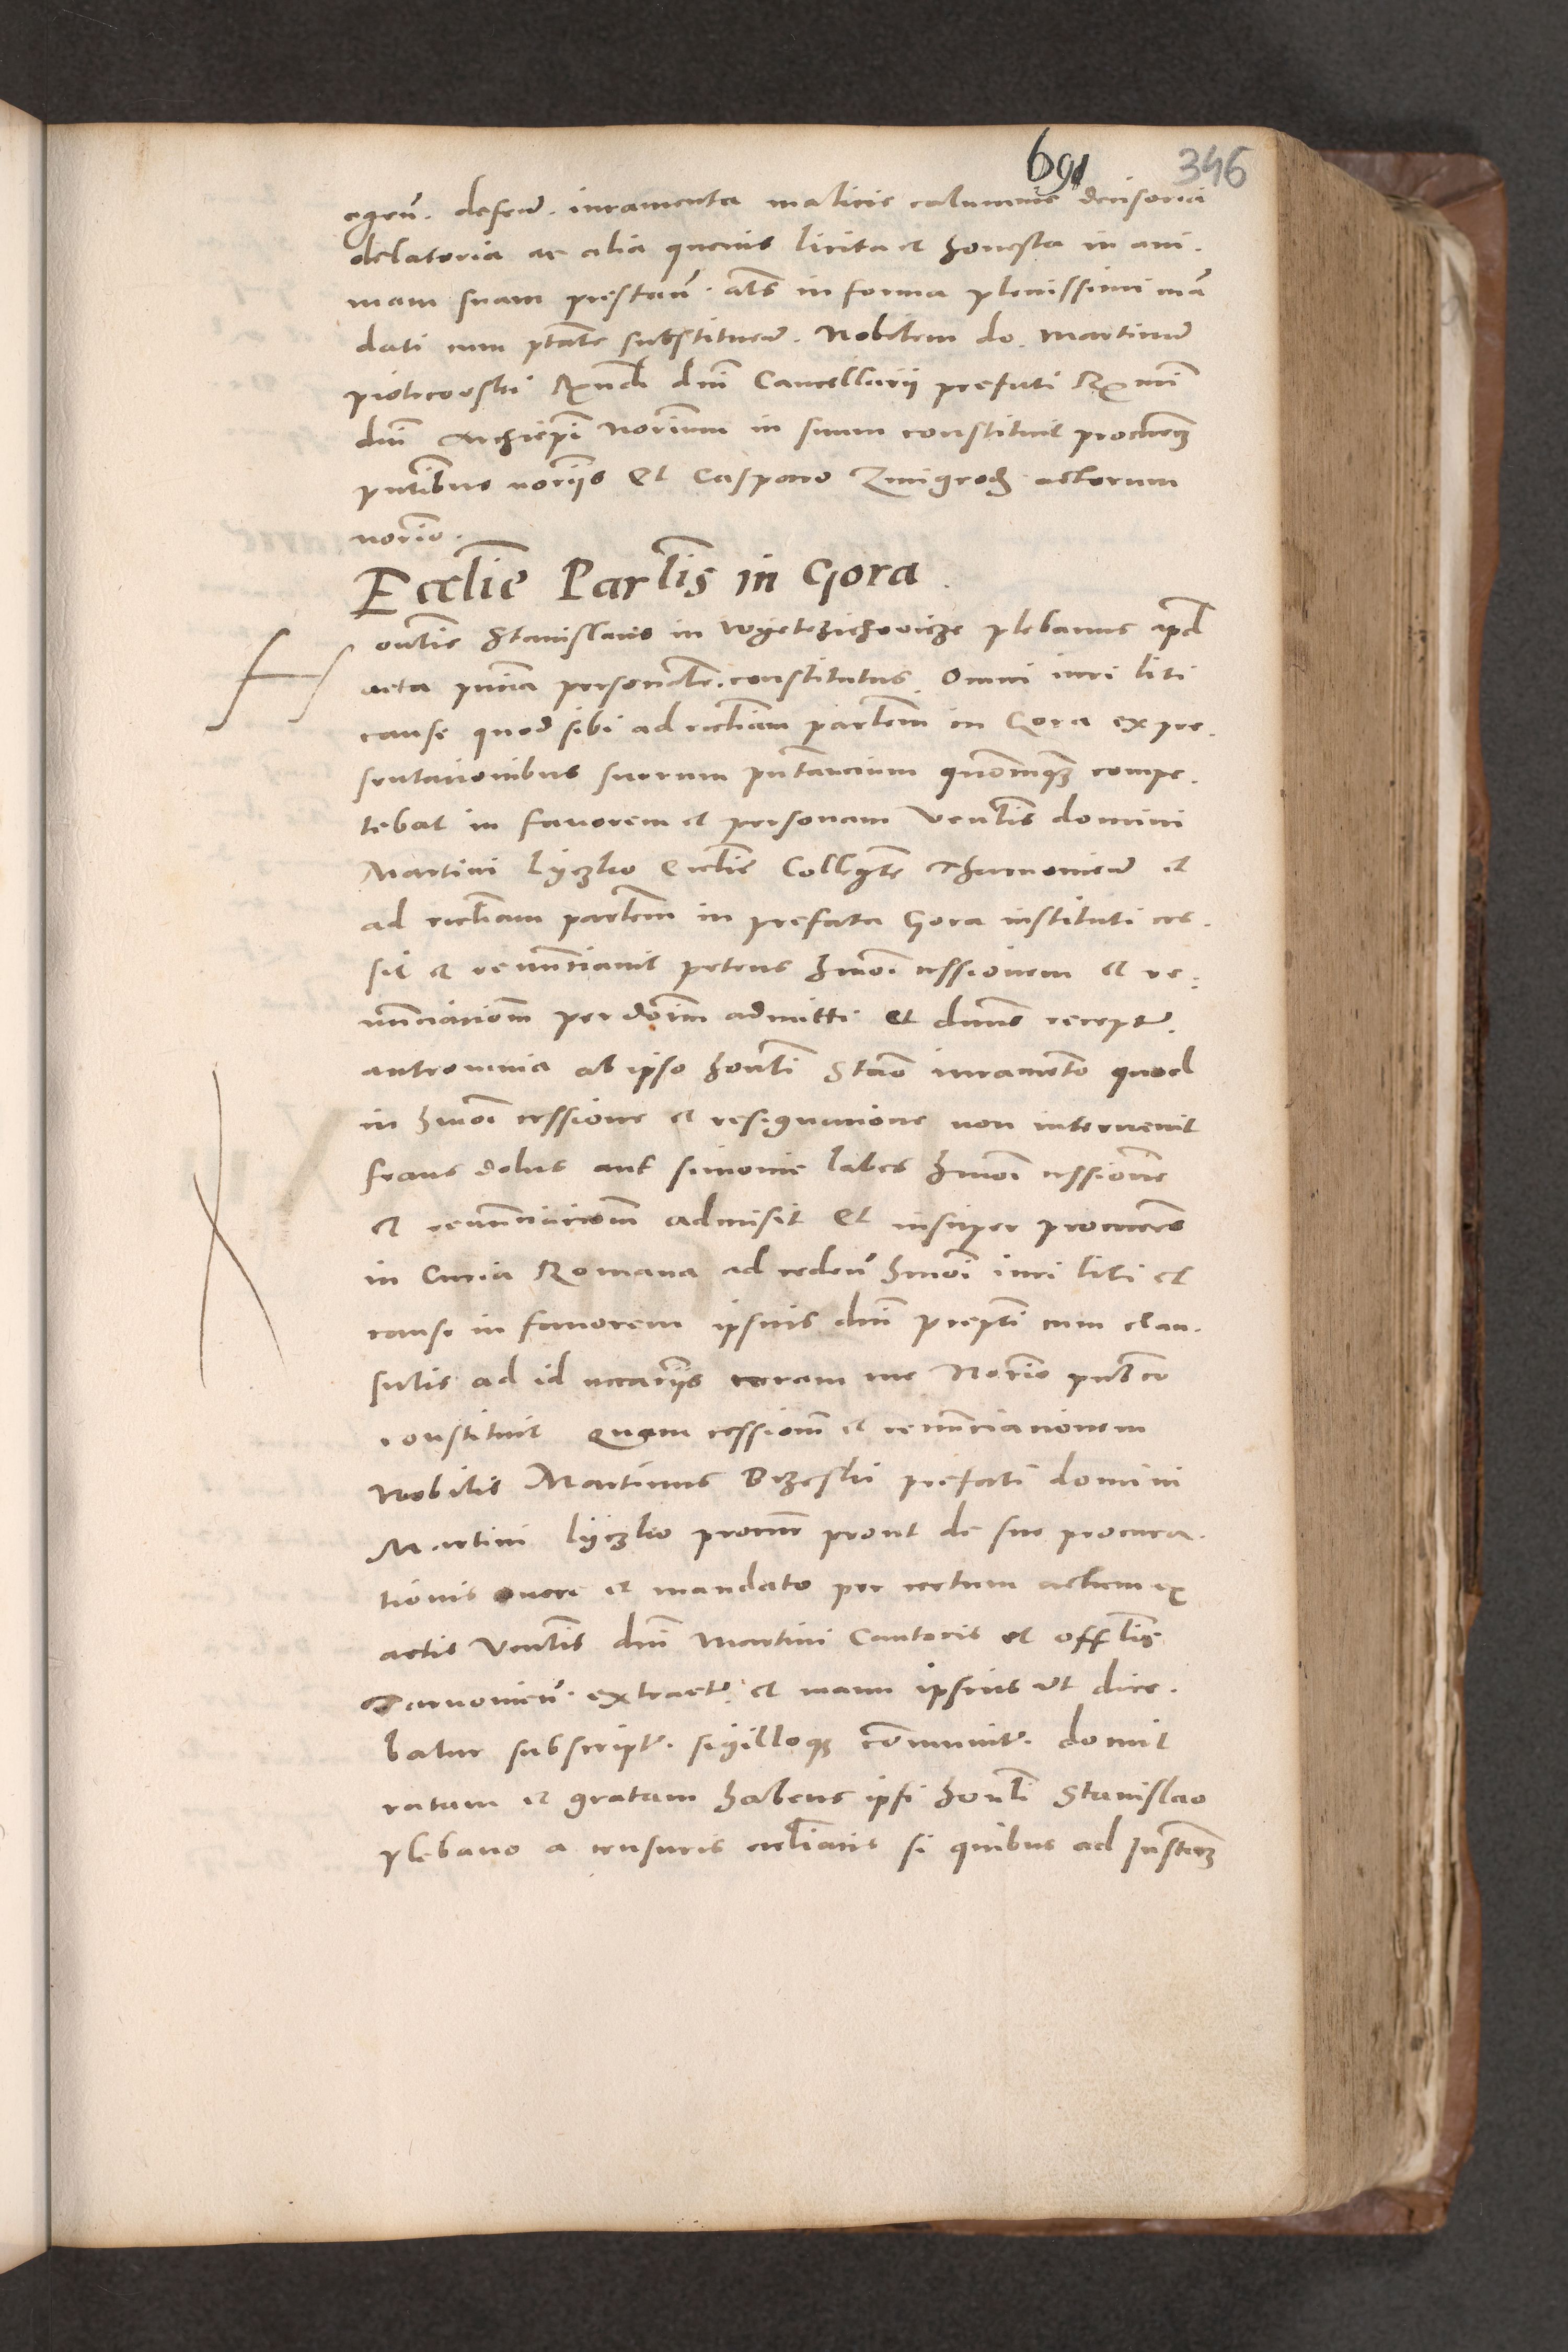 691 346
egeñ. deferñ. iuramenta malicie calumnie decisoria
delatoria ac alia quevis licita et honesta in ani-
mam suam prestañ. als in forma plenissimi mã
dati cum ptate substituend. Nobilem do. Martinum
piotrcowski Rnđi dni Cancellarii prefati Rmi
dni Archiepi Norium in suum constituit procurem
pntibus noriis Et Casparo Zmigrod actorum
norio.
Ecclie Parlis in Gora
Honlis Stanislaus in Wyetrzichovicze plebanus apđ
acta pntia personalr. constitutus. Omni iuri liti
cause quod sibi ad ecliam parlem in Gora ex pre-
sentationibus suorum pntancium quomcumqz compe-
tebat in favorem et personam Venlis domini
Martini lyczko Eclie Collegte Tharnovien et
ad ecliam parlem in prefata Gora instituti ces-
sit et renunctiavit petens hmoi cessionem et re-
nunciacioem per doim admitti et dnus recepto
antromnia ab ipso honli Stao iuramento quod
in hmoi cessione et resignacione non intervenit
fraus dolus aut simonie labes hmoi cessione
et renunciacioem admisit Et insuper procures
in Curia Romana ad cedenđ hmoi iuri liti et
cause in favorem ipsius dni prepti cum clau-
sulis ad id necariis coram me Norio publco
constituit Quam cessionem et renunciacionem
Nobilis Martinus Brzeski prefati domini
Martini lyczko procur prout de sue procura-
tionis onere et mandato per certum actum ex
actis Venlis dni Martini Cantoris et offlis
Tarnovien. extractu. et manu ipsius ut dice-
batur subscript. sigilloqz communit. docuit
ratam et gratam habens ipsi honli Stanislao
plebano a censuris ecliacis si quibus ad Instam